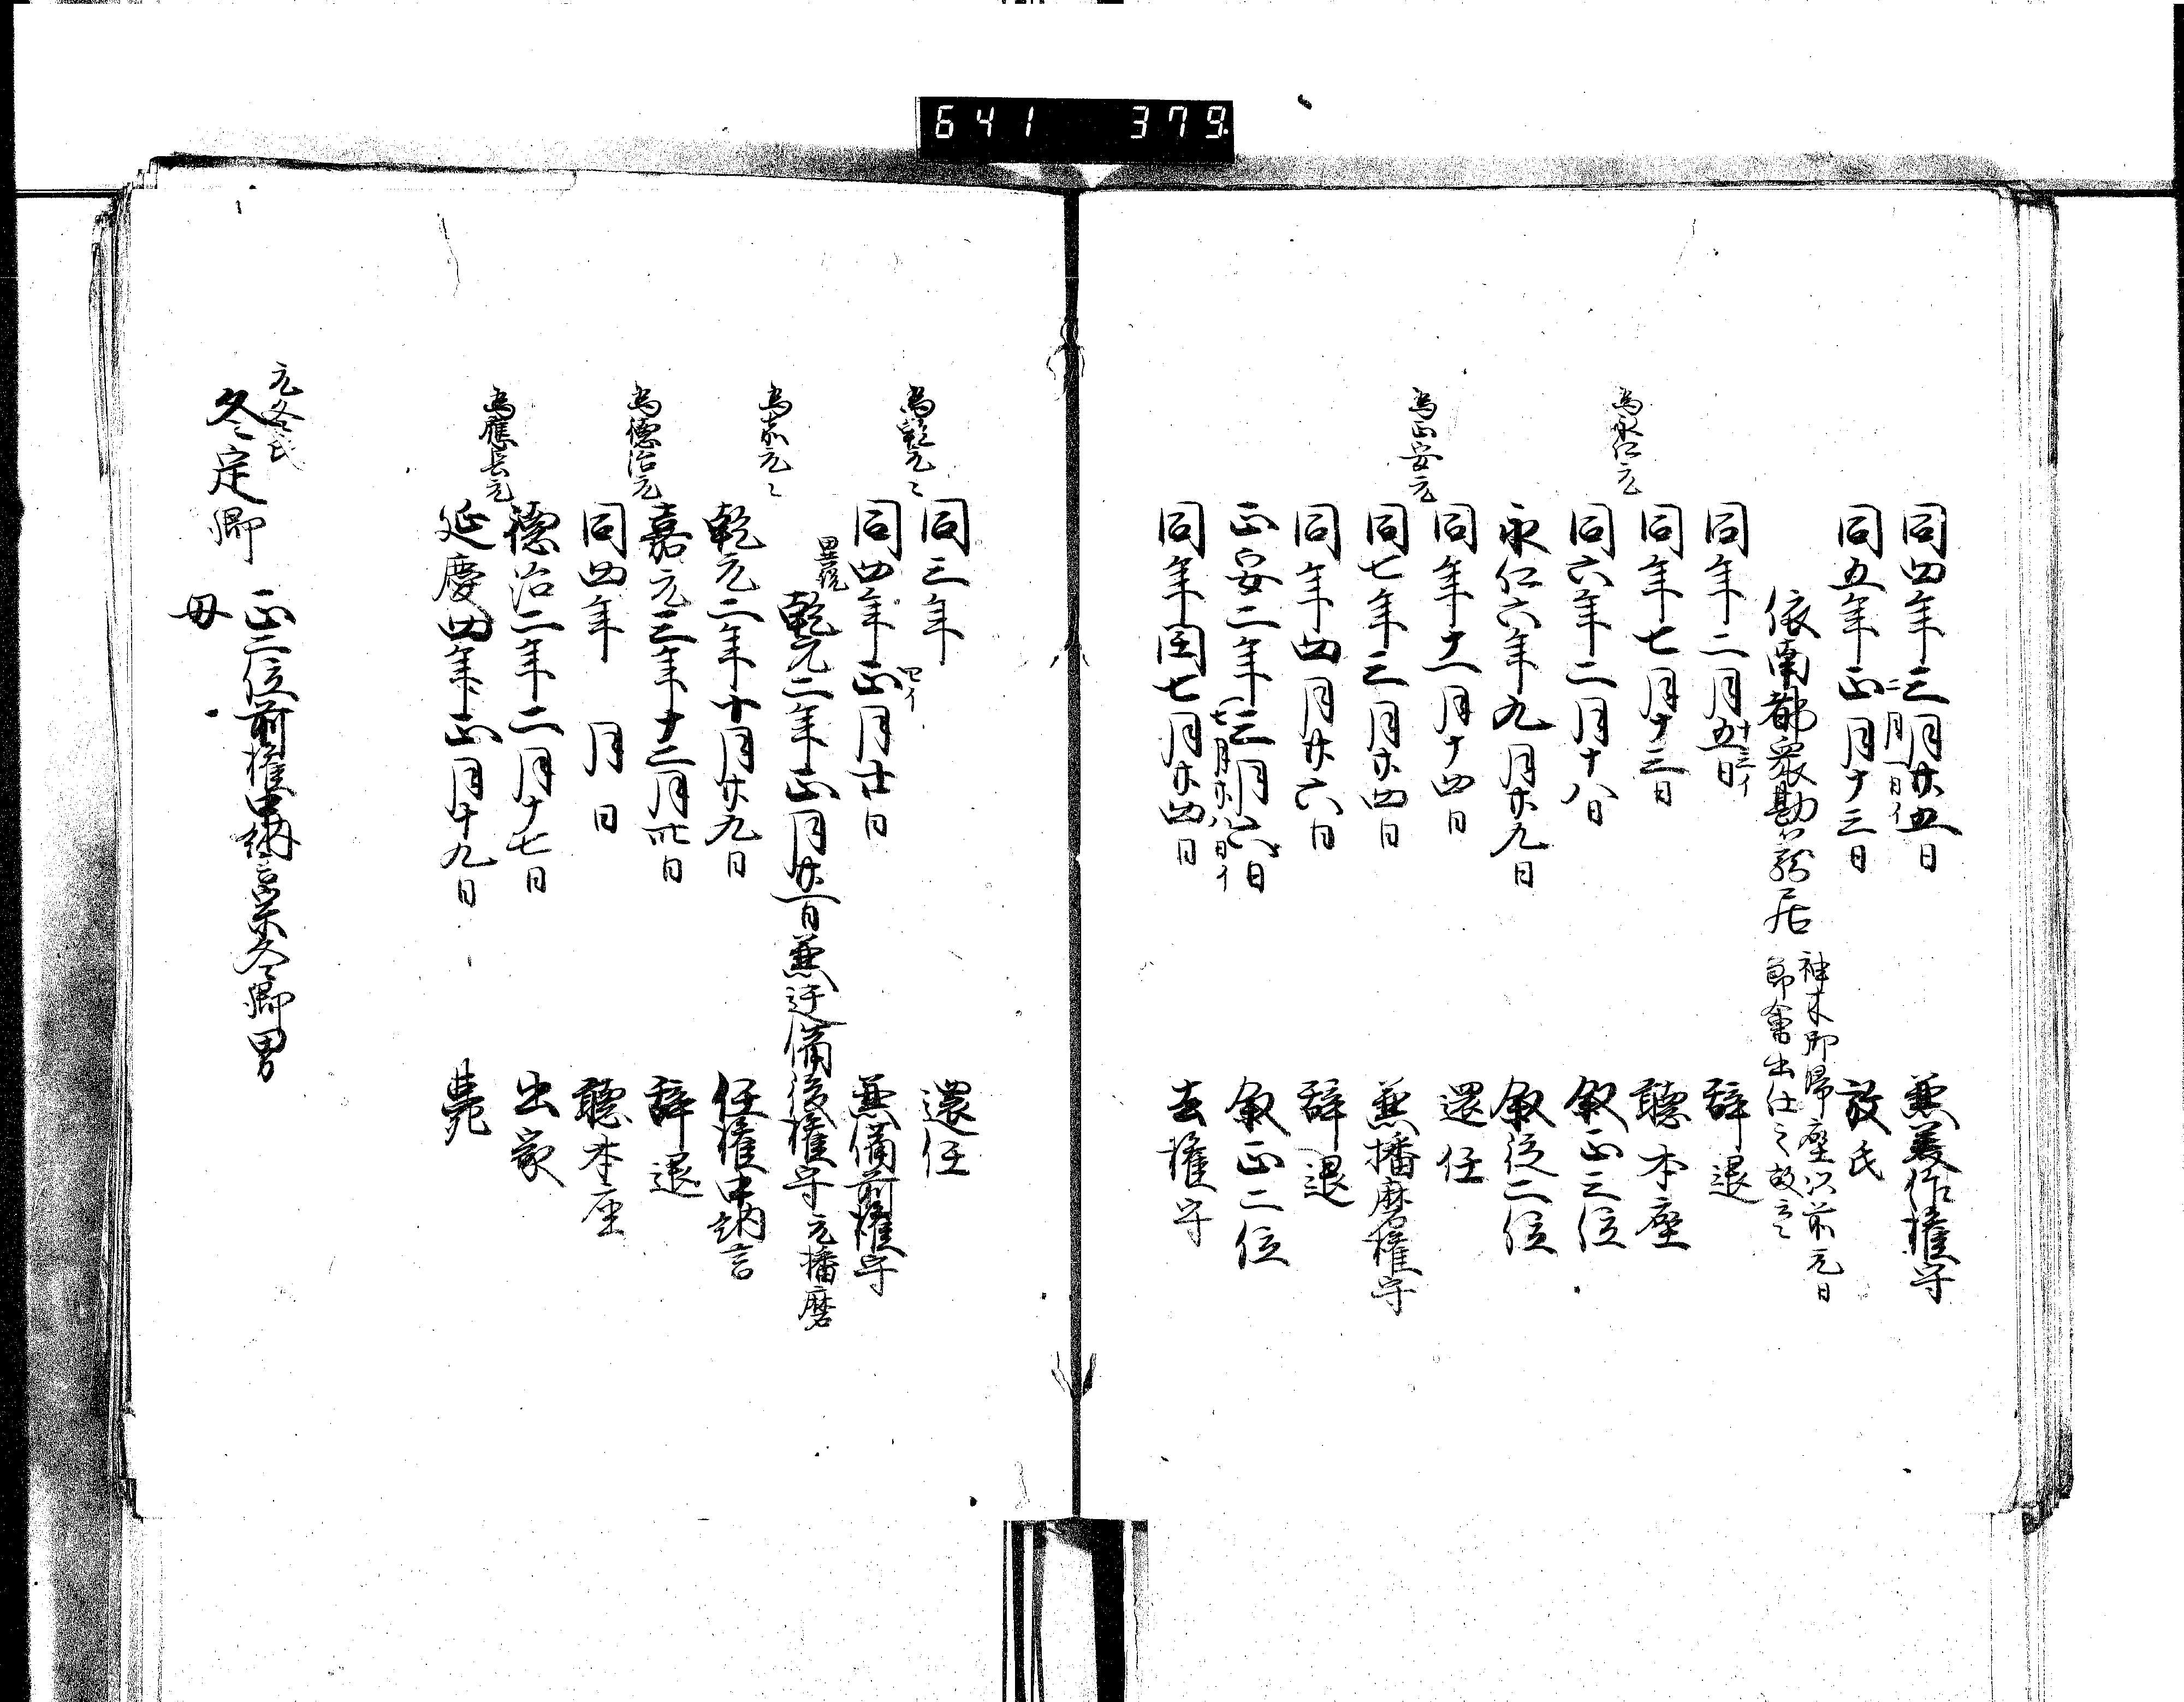 641 379
同四年三月廿五日 兼美作権守
二月一日イ
同五年正月十三日 放氏
依南都衆勘籠居 神木御帰座以前元日
節會出仕之故云々
同年二月五日 辞退
十三イ
同年七月十三日 聴本座
為永仁元
同六年二月十八日 叙正三位
永仁六年九月廿九日 叙従二位
同年十一月十四日 還任
為正安元
同七年三月廿四日 兼播磨権守
同年四月廿六日 辞退
正安二年三月六日 叙正二位
七月廿八日イ
同年閏七月廿四日 去権守
同三年 還任
為乾元々
同四年正月廿日 兼備前権守
異説
乾元二年正月廿一日兼遷備後権守元播磨
為嘉元々
乾元二年十月廿九日 任権中納言
嘉元三年十二月卅日 辞退
為徳治元
同四年 月 日 聴本座
徳治二年二月十七日 出家
為應長元
延慶四年正月十九日 薨
元冬氏
冬定卿 正二位前権中納言宗冬卿男
母